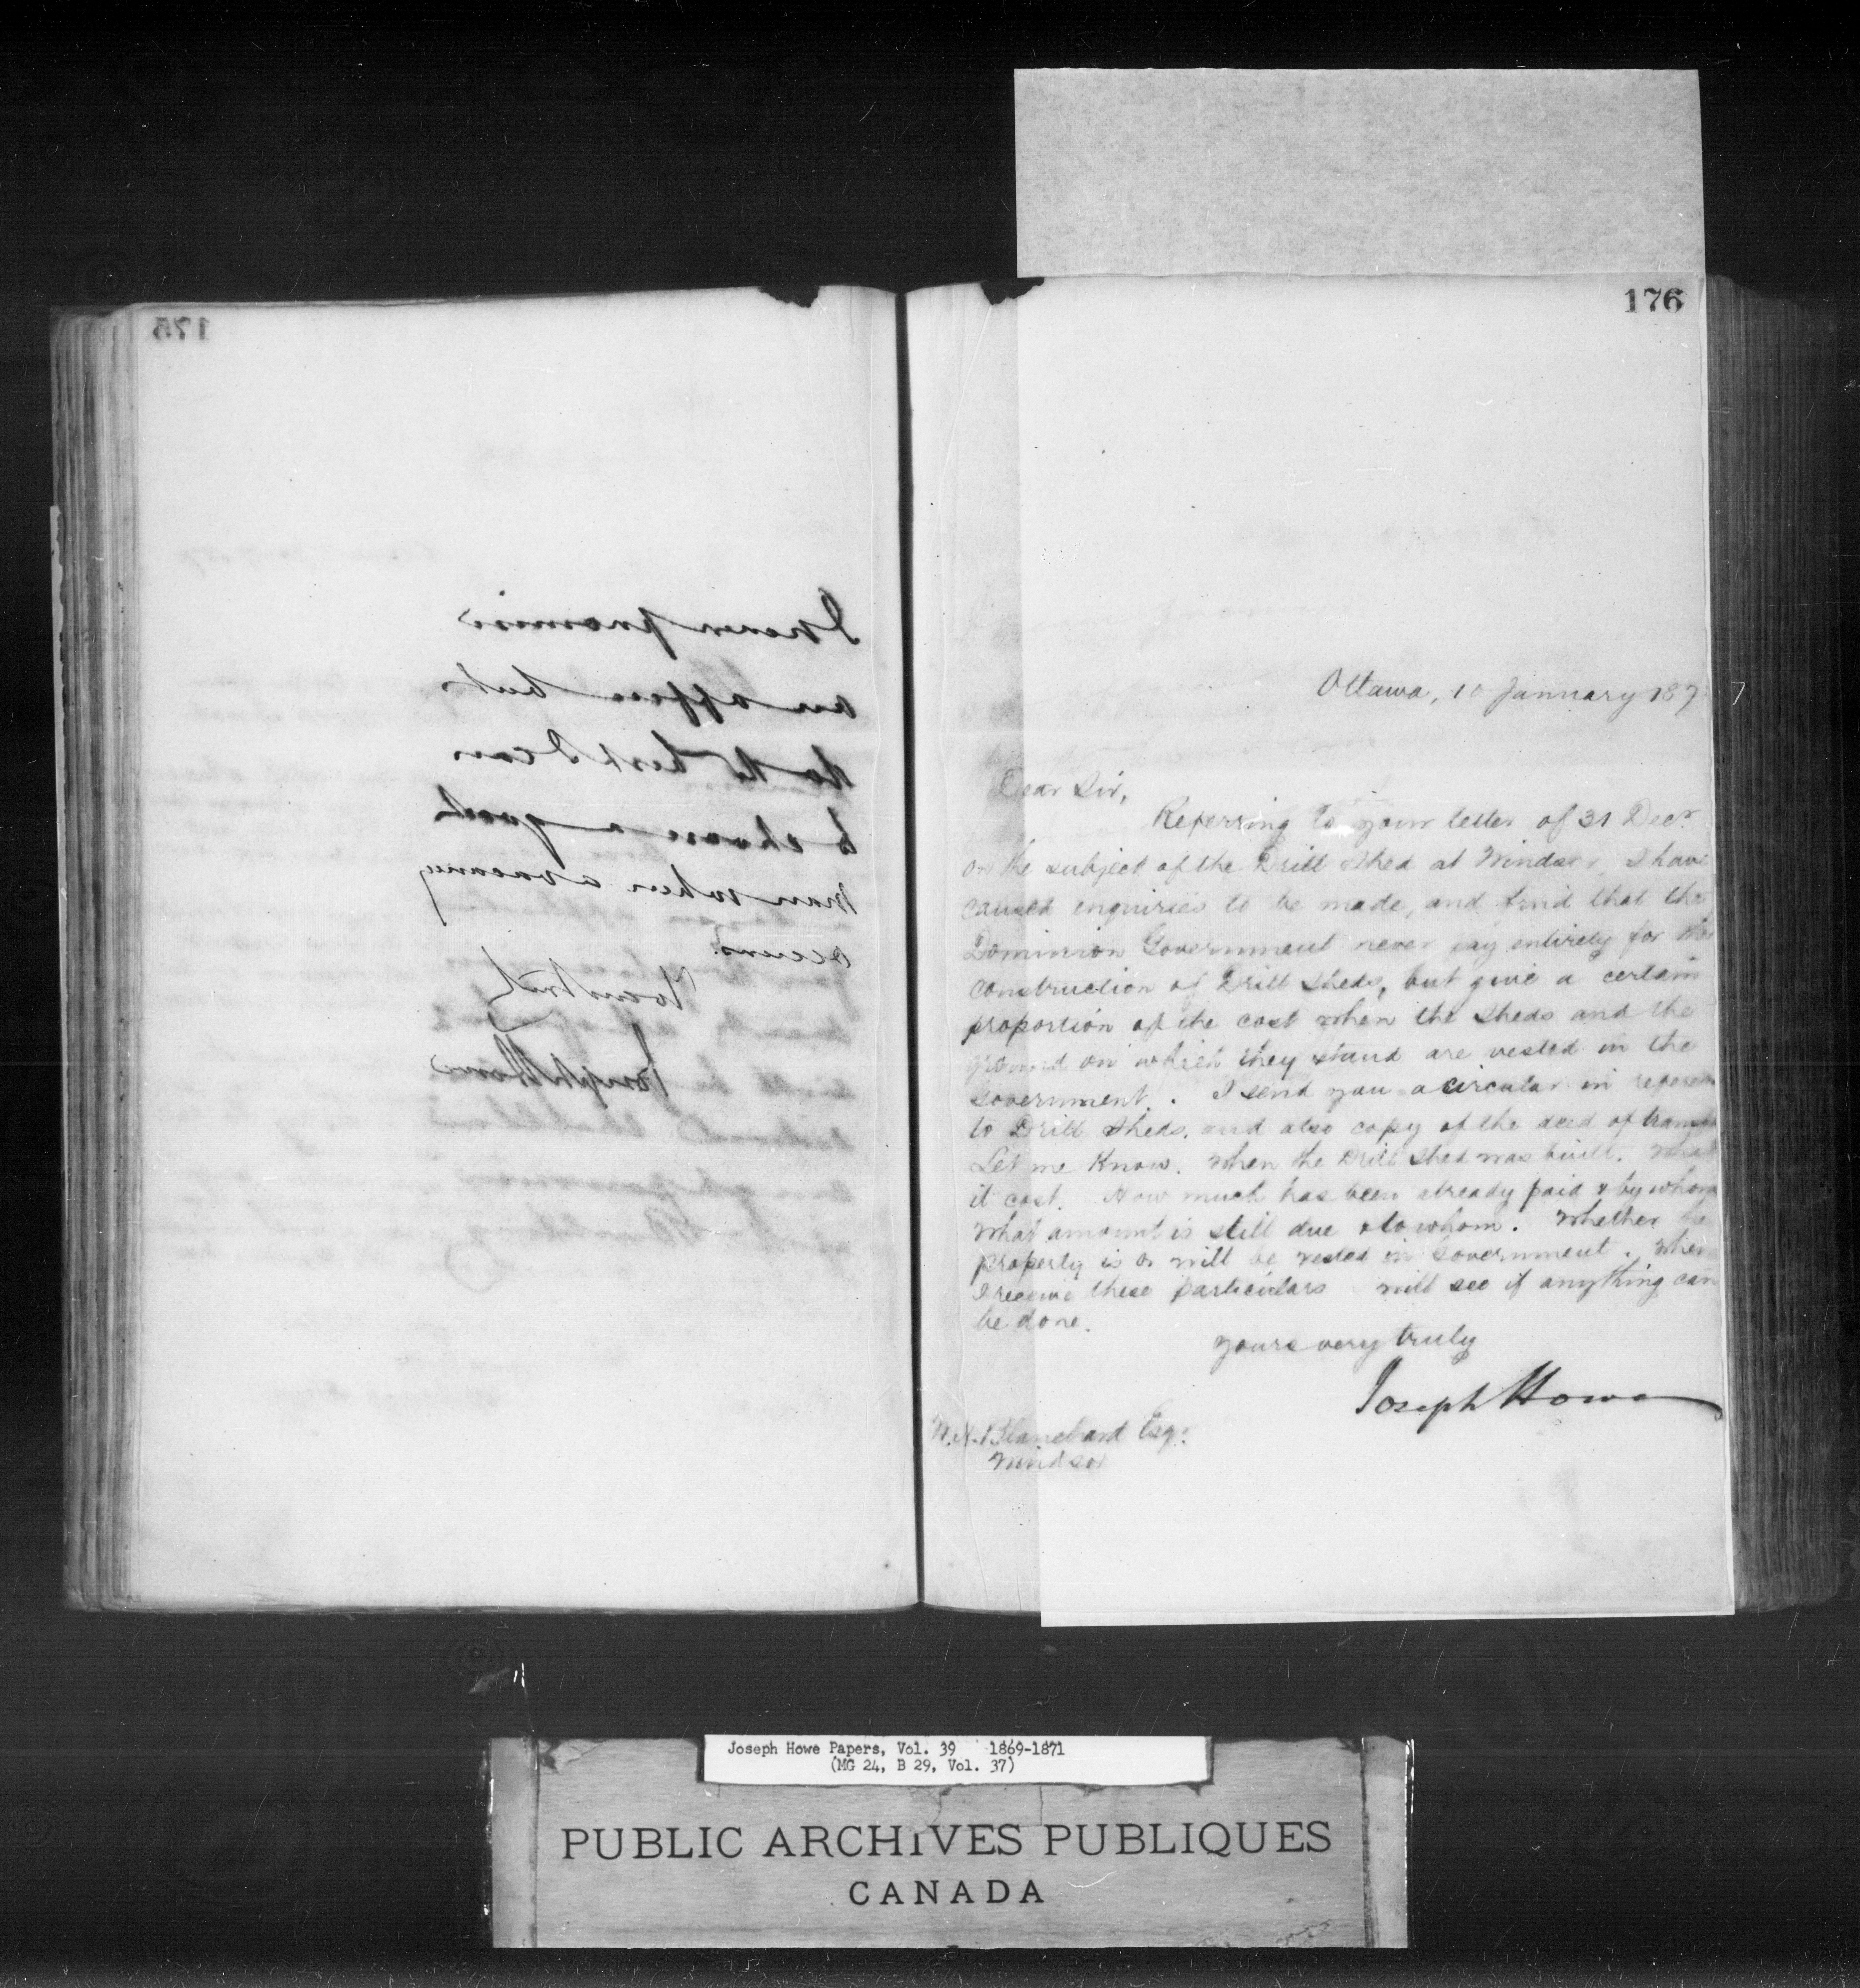 175
I never promise
an office but
do the best I can
to choose a good
man when a vacancy
occurs.
Yours truly
Joseph Howe
176
Ottawa, 10 January 187
Dear Sir,
Referring to your letter of 31 Decr.
on the subject of the Drill Shed at Windsor, I have
caused enquiries to be made, and find that the
Dominion Government never pay entirely for the
construction of Drill Sheds, but give a certain
proportion of the cost when the sheds and the
ground on which they stand are vested in the
Government. I send you a circular in
to Drill Sheds, and also copy of the deed of
Let me Know. When the Drill Shed was built. What
it cost. How much has been already paid & by whom
What amount is still due & to whom. Whether the
property is or will be vested in Government. When
I receive these particulars will see if anything can
be done.
Yours very truly
Joseph Howe
Blanchard Esqr.
Windsor
Joseph Howe Papers, Vol. 39 1869-1871
(MG 24, B 29, Vol. 37)
PUBLIC ARCHIVES PUBLIQUES
CANADA